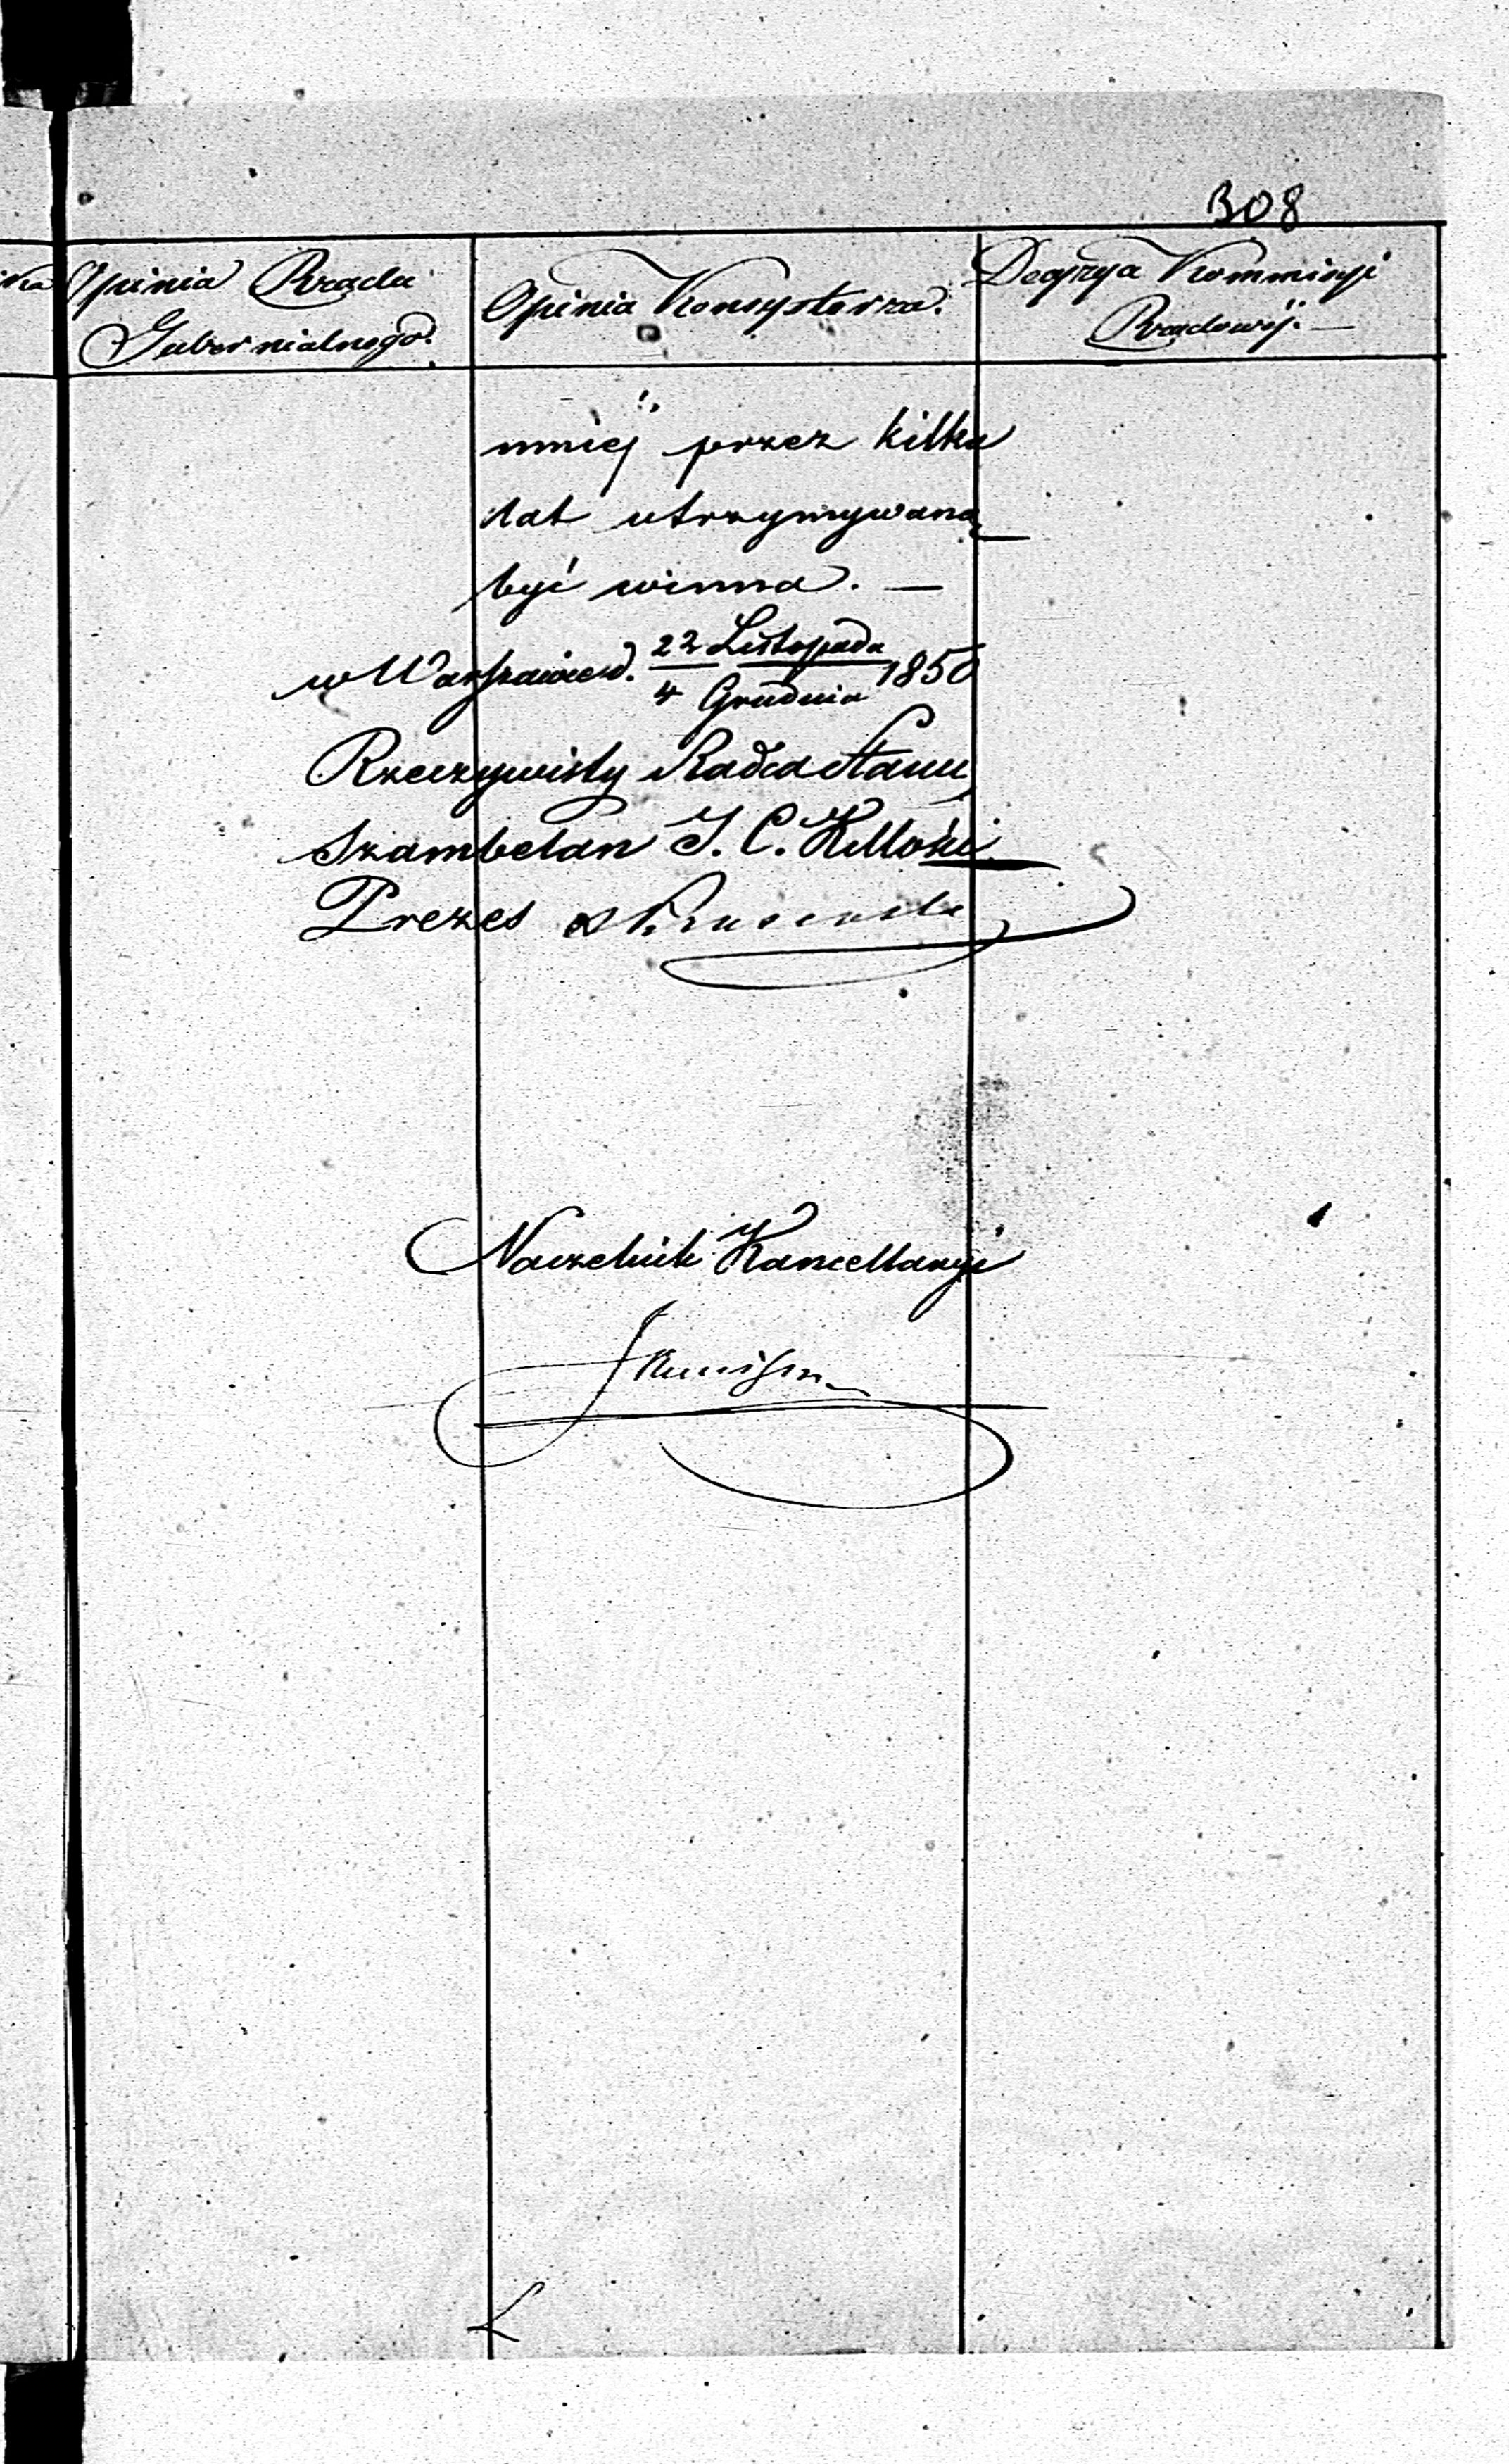 308
Opinia Rządu
Gubernialnego.
Opinia Konsystorza.
Decyzya Kommisyi
Rządowéj. —
mniéj przez kilka
lat utrzymywaną
być winna. —
w Warszawie d. 22 Listopada
4 Grudnia 1850
Rzeczywisty Radca Stanu
Szambelan J. C. K. Mości
Prezes
Naczelnik Kancellaryi